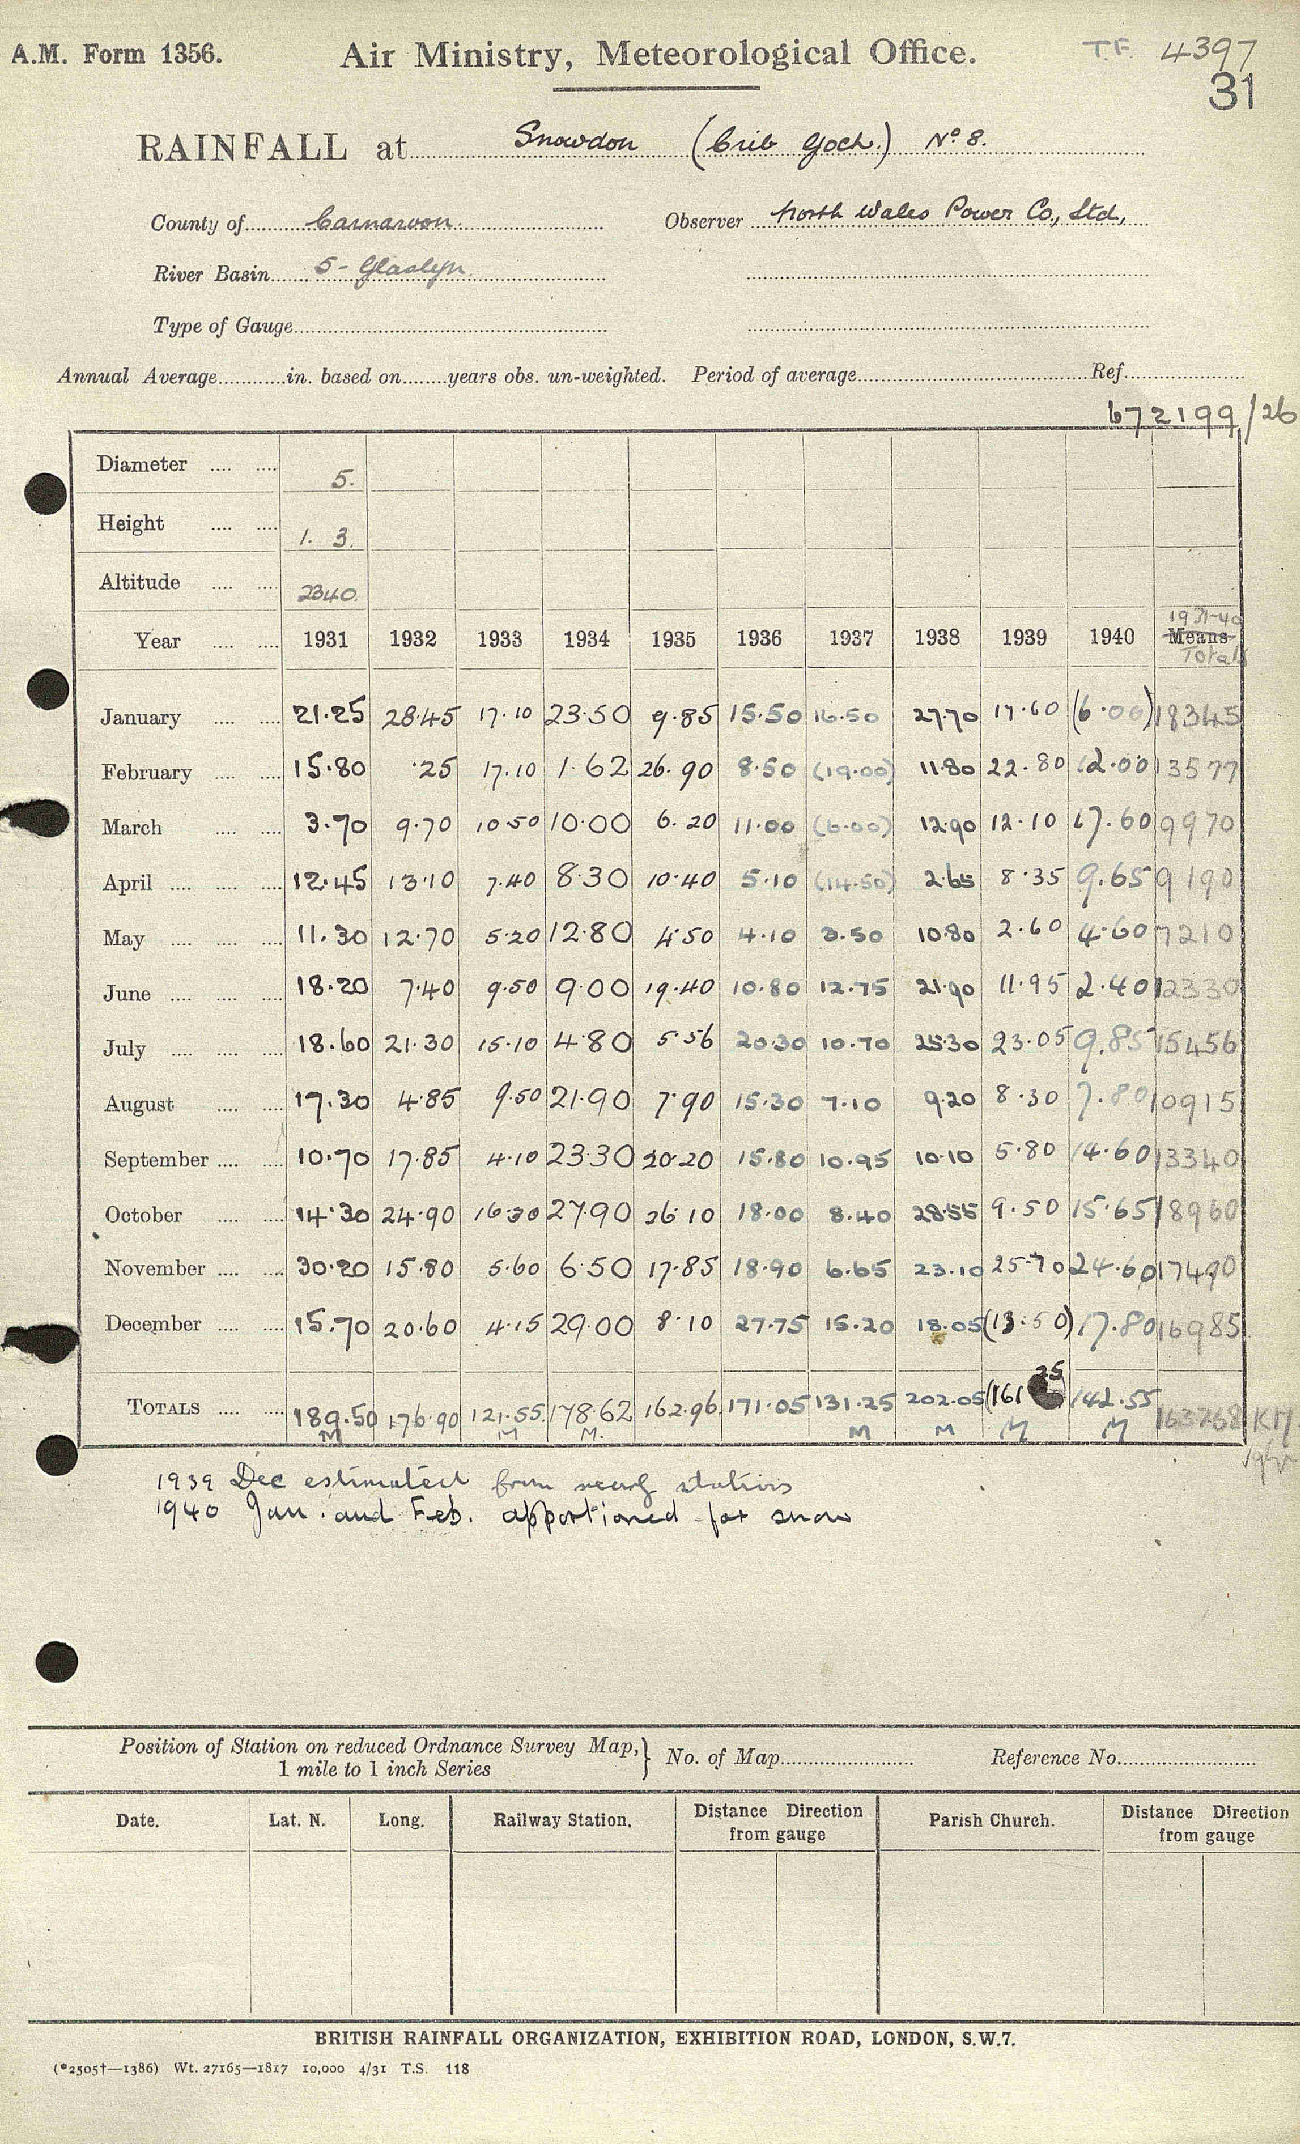 A.M. Form 1356.
Air Ministry, Meteorological Office.
T.F. 4397
31
RAINFALL at Snowdon (Crib Goch.) No 8.
County of Carnarvon. Observer North Wales Power Co., Ltd.,
River Basin 5 - Glaslyn.
Type of Gauge
Annual Average in. based on years obs. un-weighted. Period of average Ref.
672199/26
Diameter .... .... 5.
Height .... .... 1. 3.
Altitude .... .... 2340.
1931-40
Year .... .... 1931 1932 1933 1934 1935 1936 1937 1938 1939 1940 Means
Totals
January .... .... 21.25 28.45 17.10 23.50 9.85 15.50 16.50 27.70 17.60 (6.00) 18345
February .... .... 15.80 .25 17.10 1.62 26.90 8.50 (19.00) 11.80 22.80 12.00 13577
March .... .... 3.70 9.70 10.50 10.00 6.20 11.00 (6.00) 12.90 12.10 17.60 9970
April .... .... .... 12.45 13.10 7.40 8.30 10.40 5.10 (14.50) 2.65 8.35 9.65 9190
May .... .... .... 11.30 12.70 5.20 12.80 4.50 4.10 3.50 10.80 2.60 4.60 7210
June .... .... .... 18.20 7.40 9.50 9.00 19.40 10.80 12.75 21.90 11.95 2.40 12330
July .... .... .... 18.60 21.30 15.10 4.80 5.56 20.30 10.70 25.30 23.05 9.85 15456
August .... .... 17.30 4.85 9.50 21.90 7.90 15.30 7.10 9.20 8.30 7.80 10915
September .... .... 10.70 17.85 4.10 23.30 20.20 15.80 10.95 10.10 5.80 14.60 13340
October .... .... 14.30 24.90 16.30 27.90 26.10 18.00 8.40 28.55 9.50 15.65 18960
November .... .... 30.20 15.80 5.60 6.50 17.85 18.90 6.65 23.10 25.70 24.60 17490
December .... .... 15.70 20.60 4.15 29.00 8.10 27.75 15.20 18.05 (13.50) 17.80 16985
25
TOTALS .... .... 189.50 176.90 121.55 178.62 162.96 171.05 131.25 202.05 (161 142.55 163768
M M M. M M M M
1939 Dec estimated from nearby stations
1940 Jan. and Feb. apportioned for snow
Position of Station on reduced Ordnance Survey Map, } No. of Map Reference No.
1 mile to 1 inch Series
Date. Lat. N. Long. Railway Station. Distance Direction from gauge Parish Church. Distance Direction from gauge
BRITISH RAINFALL ORGANIZATION, EXHIBITION ROAD, LONDON, S.W.7.
(*2505†—1386) Wt. 27165—1817 10,000 4/31 T.S. 118